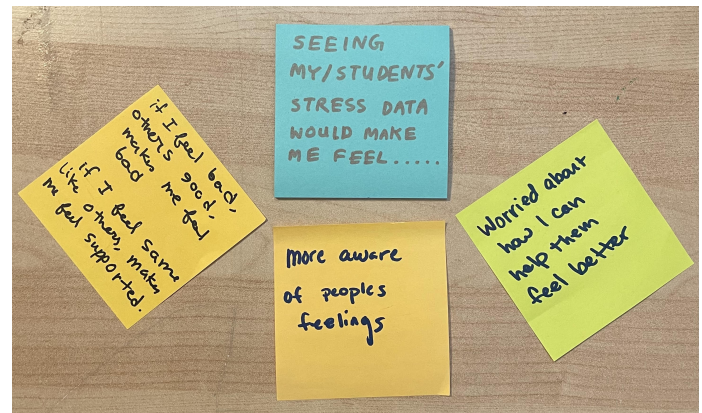 SEEING
MY/STUDENTS'
STRESS DATA
WOULD MAKE
ME FEEL.....
if I feel bad,
others good,
makes me feel
bad
if I feel same
like others, makes
me feel supported.
More aware
of peoples
feelings
Worried about
how I can
help them
feel better